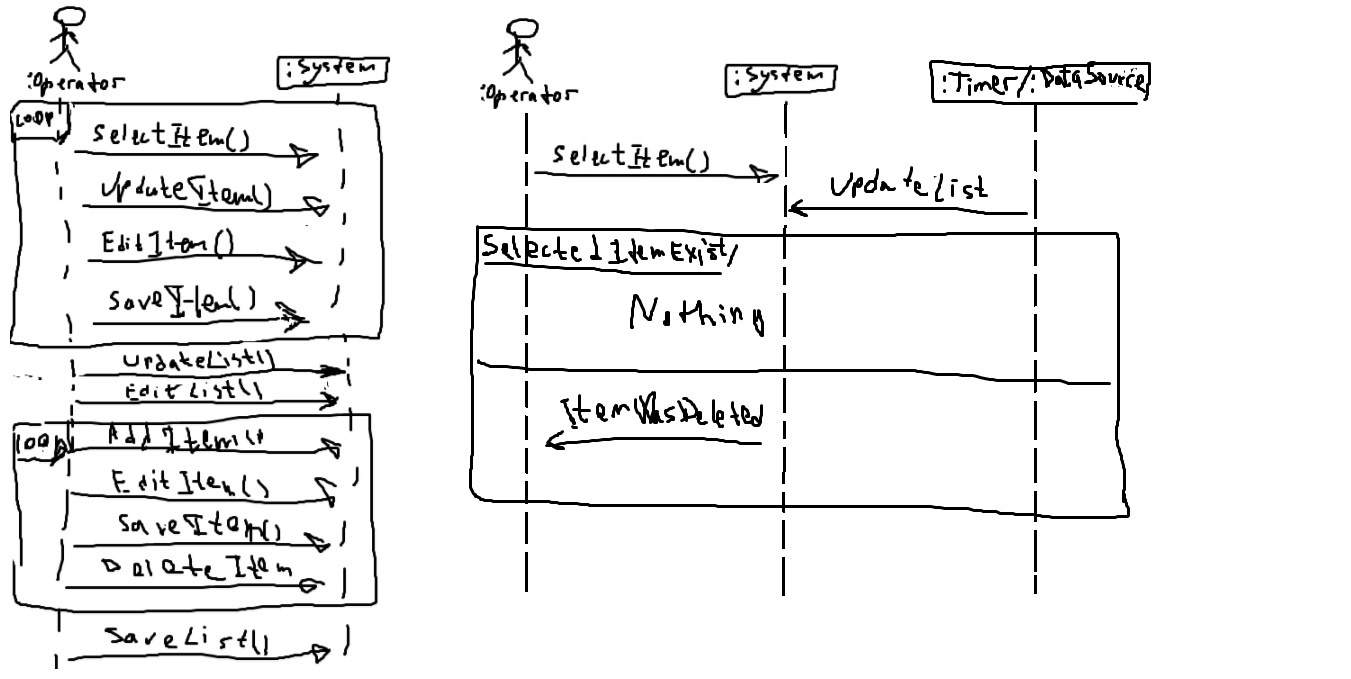 :Operator
:System
Loop
SelectItem()
UpdateItem()
EditItem()
SaveItem()
UpdateList()
EditList()
Loop
AddItem()
EditItem()
SaveItem()
DeleteItem
SaveList()
:Operator
:System
:Timer/:DataSource
SelectItem()
UpdateList
SelectedItemExist/
Nothing
ItemWasDeleted